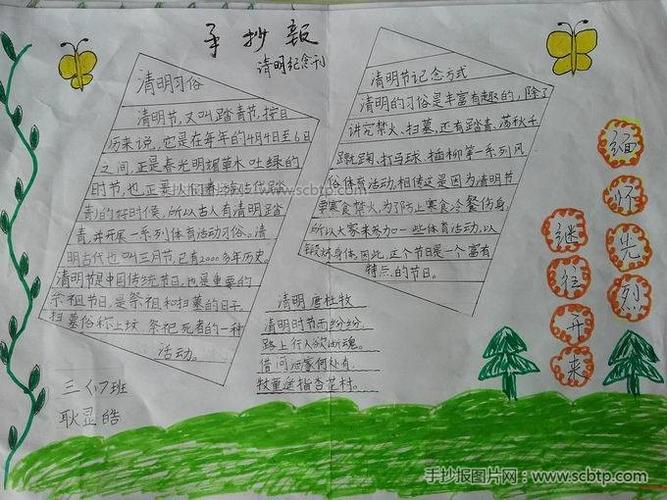 手抄报
清明纪念刊
清明习俗
清明节,又叫踏青节,按日
历来说,它是在每年的4月4日至6日
之间,正是春光明媚草木吐绿的
时节,也正是人们春游(古代踏
青)的好时候,所以古人有清明踏
青,并开展一系列体育活动习俗。清
明古代也叫三月节,已有2000多年历史。
清明节是中国传统节日,也是重要的
祭祖节日,是祭祖和扫墓的日子。
扫墓俗称上坟,祭祀死者的一种
活动。
三(7)班
耿显皓
清明节记念方式
清明的习俗是丰富有趣的,除了
讲究禁火、扫墓,还有踏青、荡秋千
蹴鞠、打马球、插柳第一系列风
俗体育活动,相传这是因为清明节
要寒食禁火,为了防止寒食冷餐伤身,
所以大家来参加一些体育活动,以
锻炼身体。因此,这个节日是一个富有
特点的节日。
清明 唐杜牧
清明时节雨纷纷,
路上行人欲断魂。
借问酒家何处有,
牧童遥指杏花村。
缅怀先烈
继往开来
www.scbtp.com
手抄报图片网:www.scbtp.com